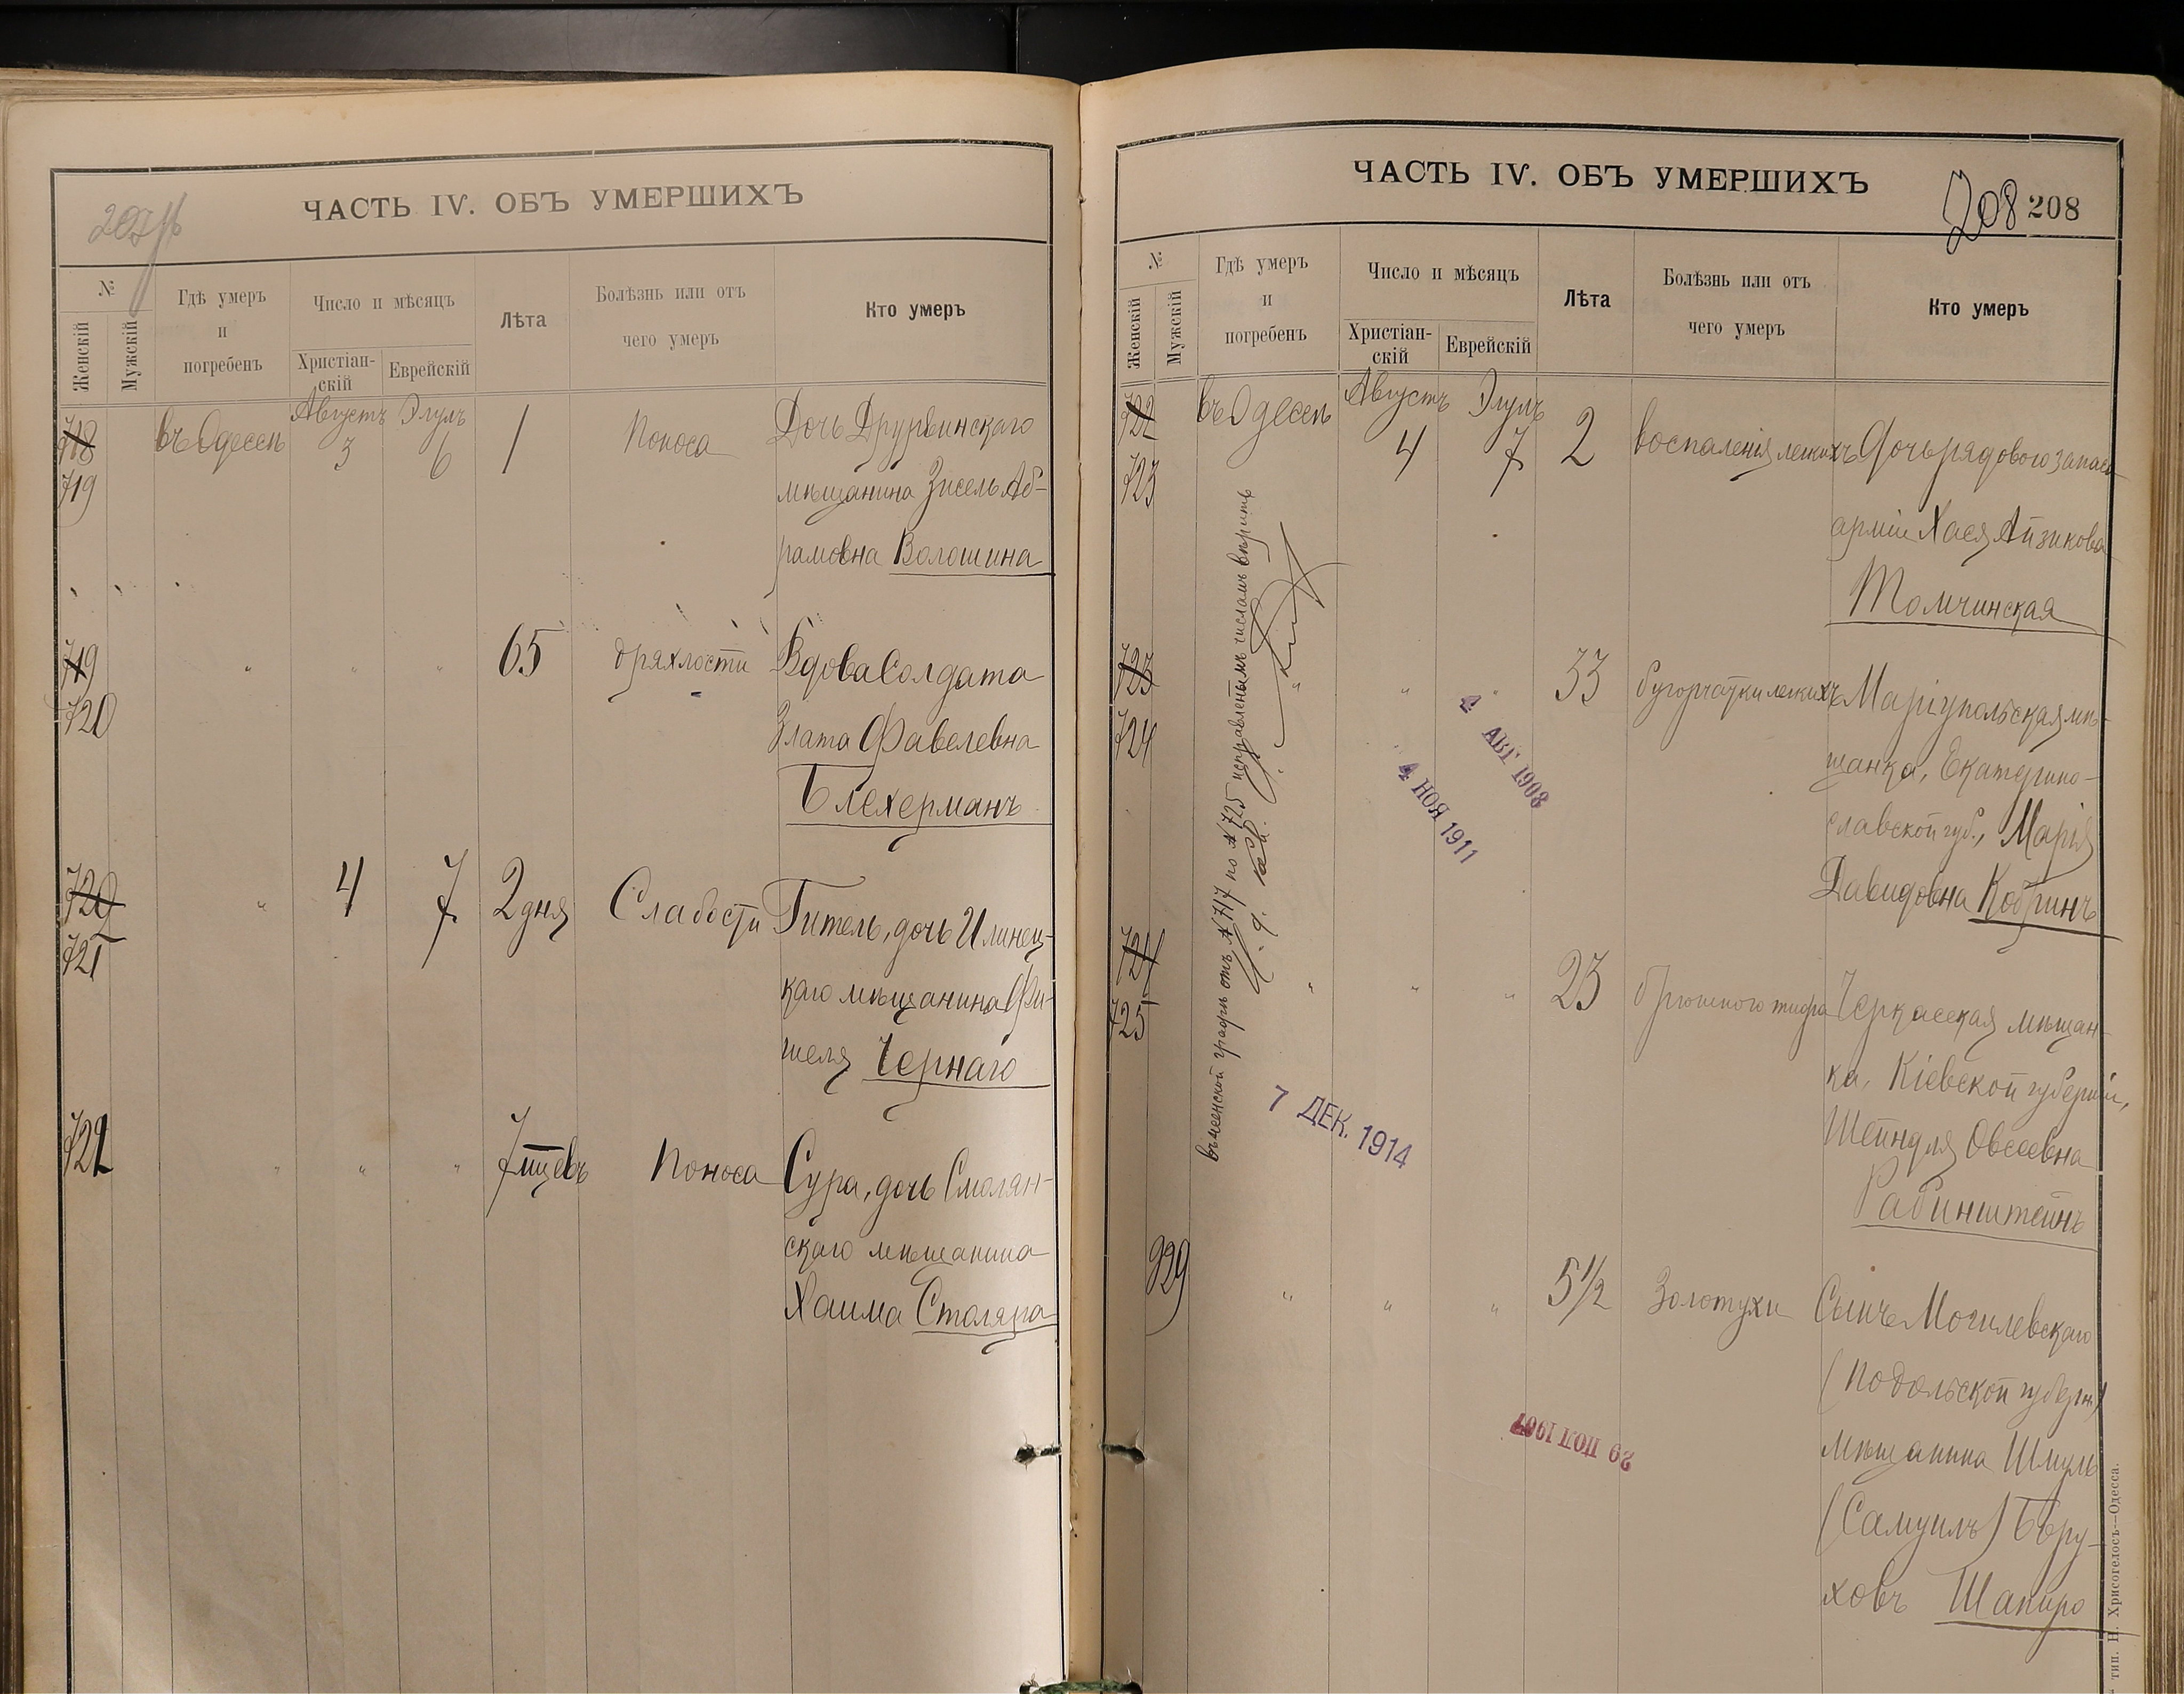 ЧАСТЬ IV. ОБЪ УМЕРШИХЪ
№
Женскій
Мужскій
Гдѣ умеръ
и
погребенъ
Число и мѣсяцъ
Христіан-
скій
Еврейскій
Лѣта
Болѣзнь или отъ
чего умеръ
Кто умеръ
718
719
въ Одессѣ
Августъ
3
Элулъ
6
1
Поноса
Дочь
мѣщанина Зисель Аб-
рамовна Волошина
719
720
" " "
65
дряхлости
Вдова Солдата
Злата Фавелевна
Блехерманъ
720
721
"
4
7
2 дня
Слабости
Гитель, дочь Илинец-
каго мѣщанина Фи-
шеля Чернаго
722
" " "
7 мцевъ
Поноса
Сура, дочь Смолян-
скаго мѣщанина
Хаима Столяра
ЧАСТЬ IV. ОБЪ УМЕРШИХЪ
208 208
№
Женскій
Мужскій
Гдѣ умеръ
и
погребенъ
Число и мѣсяцъ
Христіан-
скій
Еврейскій
Лѣта
Болѣзнь или отъ
чего умеръ
Кто умеръ
722
723
въ Одессѣ
Августъ
4
Элулъ
7
2
воспаленія легкихъ
Дочь рядового запаса
арміи Хася Айзикова
Томчинская
723
724
" " "
33
бугорчатки легкихъ
Маріупольская мѣ-
щанка, Екатерино-
славской губ., Марія
Давидовна Кобринъ
724
725
" " "
23
брюшного тифа
Черкасская мѣщан-
ка, Кіевской губерніи,
Шейндля Овсеевна
Рабинштейнъ
929
" " "
5 1/2
Золотухи
Сынъ Могилевскаго
(Подольской губерн.)
мѣщанина Шмуль
(Самуилъ) Беру-
ховъ Шапиро
въ женской графѣ отъ № 717 по № 725 исправленнымъ числамъ вѣрить
4 АВГ 1908
4 НОЯ 1911
7 ДЕК. 1914
тип. Н. Хрисогелосъ—Одесса.